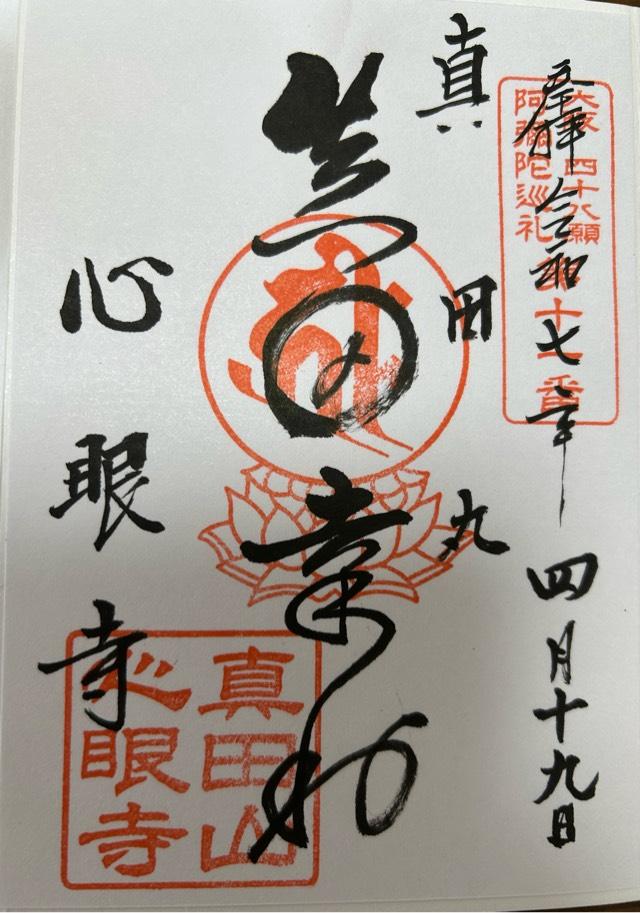 奉拝 令和七年四月十九日
大阪四十八願
阿彌陀巡礼
真田丸
真田幸村
心眼寺
真田山
心眼寺